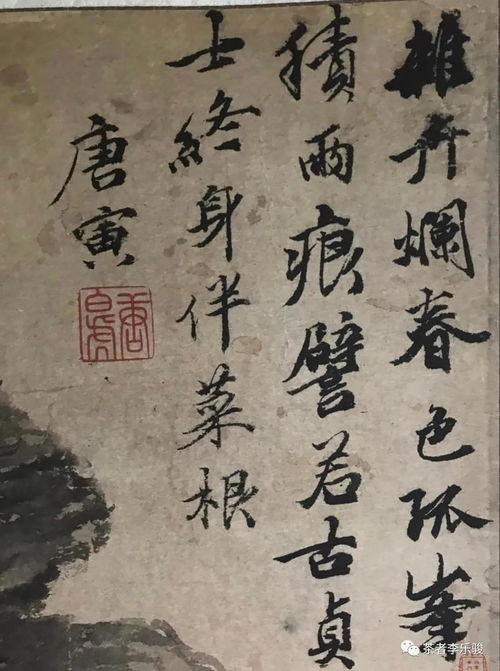 雜卉爛春色孤峯
積雨痕譬若古貞
士終身伴菜根
唐寅
唐白虎
茶者李乐骏